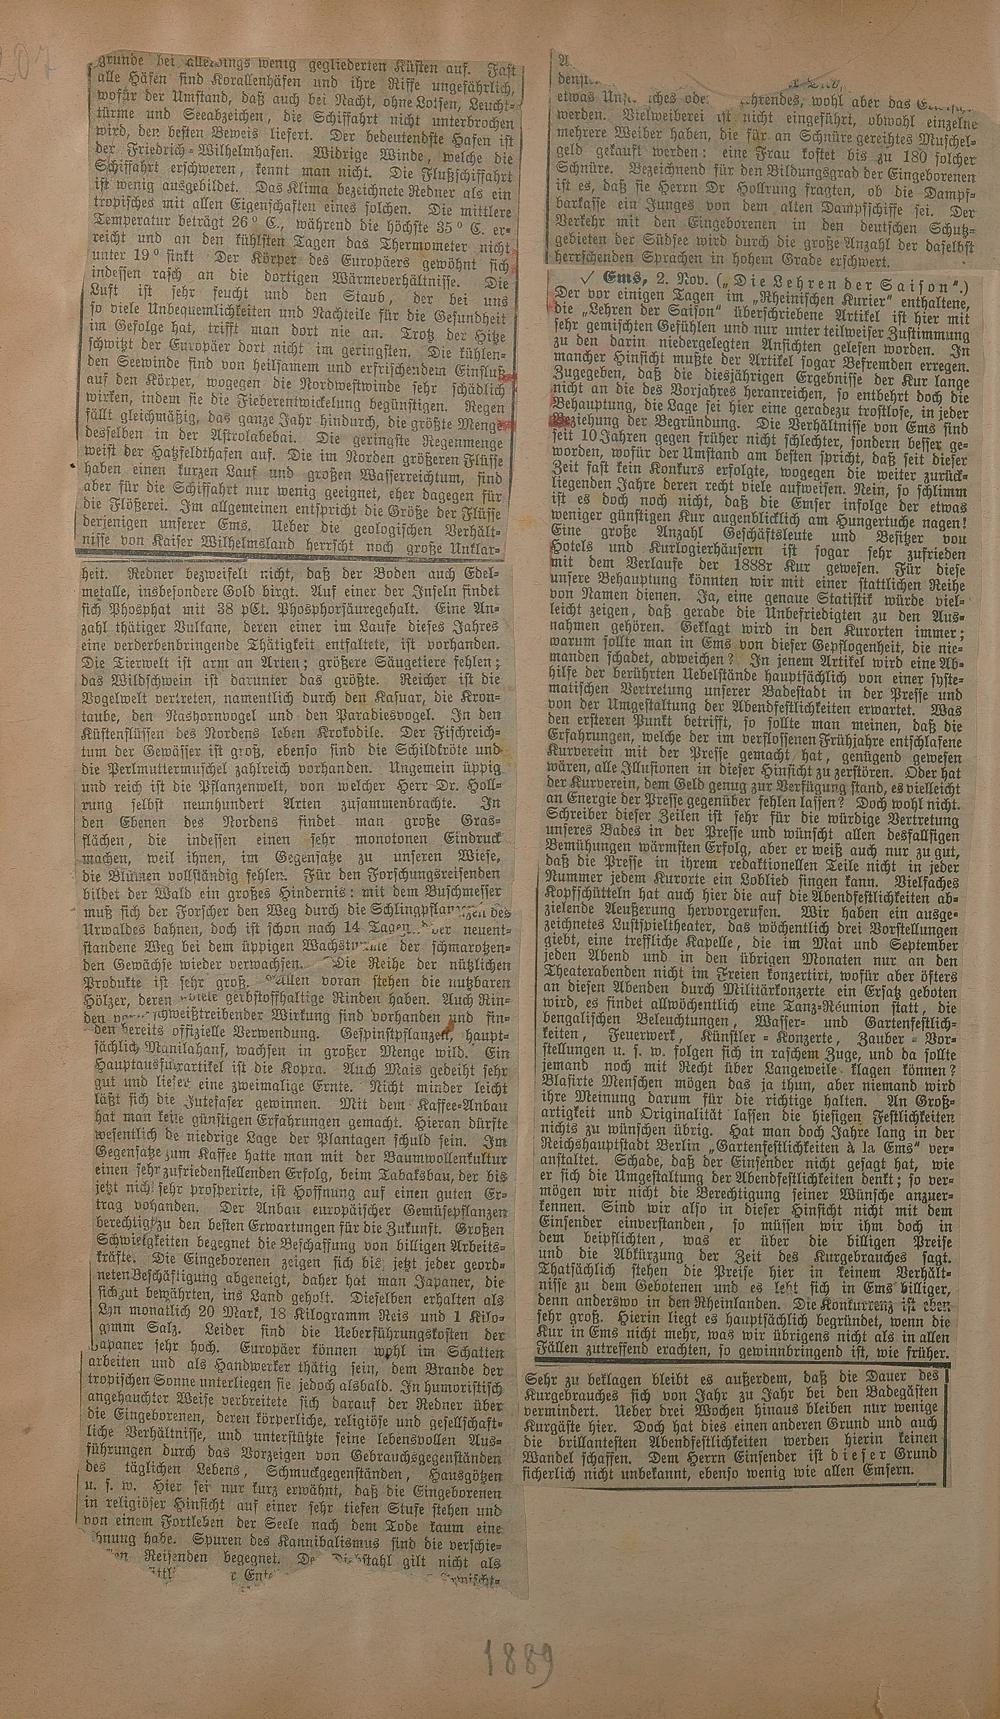 207
grunde bei allerdings wenig gegliederten Küsten auf. Fast
alle Häfen sind Korallenhäfen und ihre Riffe ungefährlich,
wofür der Umstand, daß auch bei Nacht, ohne Lotsen, Leucht-
türme und Seeabzeichen, die Schiffahrt nicht unterbrochen
wird, den besten Beweis liefert. Der bedeutendste Hafen ist
der Friedrich-Wilhelmhafen. Widrige Winde, welche die
Schiffahrt erschweren, kennt man nicht. Die Flußschiffahrt
ist wenig ausgebildet. Das Klima bezeichnete Redner als ein
tropisches mit allen Eigenschaften eines solchen. Die mittlere
Temperatur beträgt 26° C., während die höchste 35° C. er-
reicht und an den kühlsten Tagen das Thermometer nicht
unter 19° sinkt. Der Körper des Europäers gewöhnt sich
indessen rasch an die dortigen Wärmeverhältnisse. Die
Luft ist sehr feucht und den Staub, der bei uns
so viele Unbequemlichkeiten und Nachteile für die Gesundheit
im Gefolge hat, trifft man dort nie an. Trotz der Hitze
schwitzt der Europäer dort nicht im geringsten. Die kühlen-
den Seewinde sind von heilsamem und erfrischendem Einfluß
auf den Körper, wogegen die Nordwestwinde sehr schädlich
wirken, indem sie die Fieberentwickelung begünstigen. Regen
fällt gleichmäßig, das ganze Jahr hindurch, die größte Menge
desselben in der Astrolabebai. Die geringste Regenmenge
weist der Hatzfeldthafen auf. Die im Norden größeren Flüsse
haben einen kurzen Lauf und großen Wasserreichtum, sind
aber für die Schiffahrt nur wenig geeignet, eher dagegen für
die Flößerei. Im allgemeinen entspricht die Größe der Flüsse
derjenigen unserer Ems. Ueber die geologischen Verhält-
nisse von Kaiser Wilhelmsland herrscht noch große Unklar-
heit. Redner bezweifelt nicht, daß der Boden auch Edel-
metalle, insbesondere Gold birgt. Auf einer der Inseln findet
sich Phosphat mit 38 pCt. Phosphorsäuregehalt. Eine An-
zahl thätiger Vulkane, deren einer im Laufe dieses Jahres
eine verderbenbringende Thätigkeit entfaltete, ist vorhanden.
Die Tierwelt ist arm an Arten; größere Säugetiere fehlen;
das Wildschwein ist darunter das größte. Reicher ist die
Vogelwelt vertreten, namentlich durch den Kasuar, die Kron-
taube, den Nashornvogel und den Paradiesvogel. In den
Küstenflüssen des Nordens leben Krokodile. Der Fischreich-
tum der Gewässer ist groß, ebenso sind die Schildkröte und
die Perlmuttermuschel zahlreich vorhanden. Ungemein üppig
und reich ist die Pflanzenwelt, von welcher Herr Dr. Holl-
rung selbst neunhundert Arten zusammenbrachte. In
den Ebenen des Nordens findet man große Gras-
flächen, die indessen einen sehr monotonen Eindruck
machen, weil ihnen, im Gegensatze zu unseren Wiese,
die Blumen vollständig fehlen. Für den Forschungsreisenden
bildet der Wald ein großes Hindernis: mit dem Buschmesser
muß sich der Forscher den Weg durch die Schlingpflanzen des
Urwaldes bahnen, doch ist schon nach 14 Tagen der neuent-
standene Weg bei dem üppigen Wachstume der schmarotzen-
den Gewächse wieder verwachsen. Die Reihe der nützlichen
Produkte ist sehr groß. Allen voran stehen die nutzbaren
Hölzer, deren viele gerbstoffhaltige Rinden haben. Auch Rin-
den von schweißtreibender Wirkung sind vorhanden und fin-
den bereits offizielle Verwendung. Gespinstpflanzen, haupt-
sächlich Manilahanf, wachsen in großer Menge wild. Ein
Hauptausfuhrartikel ist die Kopra. Auch Mais gedeiht sehr
gut und liefert eine zweimalige Ernte. Nicht minder leicht
läßt sich die Jutefaser gewinnen. Mit dem Kaffee-Anbau
hat man keine günstigen Erfahrungen gemacht. Hieran dürfte
wesentlich die niedrige Lage der Plantagen schuld sein. Im
Gegensatze zum Kaffee hatte man mit der Baumwollenkultur
einen sehr zufriedenstellenden Erfolg, beim Tabaksbau, der bis
jetzt nicht sehr prosperirte, ist Hoffnung auf einen guten Er-
trag vohanden. Der Anbau europäischer Gemüsepflanzen
berechtigt zu den besten Erwartungen für die Zukunft. Großen
Schwierigkeiten begegnet die Beschaffung von billigen Arbeits-
kräfte. Die Eingeborenen zeigen sich bis jetzt jeder geord-
neten Beschäftigung abgeneigt, daher hat man Japaner, die
sich gut bewährten, ins Land geholt. Dieselben erhalten als
Lohn monatlich 20 Mark, 18 Kilogramm Reis und 1 Kilo-
gramm Salz. Leider sind die Ueberführungskosten der
Japaner sehr hoch. Europäer können wohl im Schatten
arbeiten und als Handwerker thätig sein, dem Brande der
tropischen Sonne unterliegen sie jedoch alsbald. In humoristisch
angehauchter Weise verbreitete sich darauf der Redner über
die Eingeborenen, deren körperliche, religiöse und gesellschaft-
liche Verhältnisse, und unterstützte seine lebensvollen Aus-
führungen durch das Vorzeigen von Gebrauchsgegenständen
des täglichen Lebens, Schmuckgegenständen, Hausgötzen
u. s. w. Hier sei nur kurz erwähnt, daß die Eingeborenen
in religiöser Hinsicht auf einer sehr tiefen Stufe stehen und
von einem Fortleben der Seele nach dem Tode kaum eine
Ahnung habe. Spuren des Kannibalismus sind die verschie-
Reisenden begegnet. Der Diebstahl gilt nicht als
etwas oder wohl aber das
werden. Vielweiberei ist nicht eingeführt, obwohl einzelne
mehrere Weiber haben, die für an Schnüre gereihtes Muschel-
geld gekauft werden: eine Frau kostet bis zu 180 solcher
Schnüre. Bezeichnend für den Bildungsgrad der Eingeborenen
ist es, daß sie Herrn Dr Hollrung fragten, ob die Dampf-
barkasse ein Junges von dem alten Dampfschiffe sei. Der
Verkehr mit den Eingeborenen in den deutschen Schutz-
gebieten der Südsee wird durch die große Anzahl der daselbst
herrschenden Sprachen in hohem Grade erschwert.
✓ Ems, 2. Nov. („Die Lehren der Saison“.)
Der vor einigen Tagen im „Rheinischen Kurier“ enthaltene,
die „Lehren der Saison“ überschriebene Artikel ist hier mit
sehr gemischten Gefühlen und nur unter teilweiser Zustimmung
zu den darin niedergelegten Ansichten gelesen worden. In
mancher Hinsicht mußte der Artikel sogar Befremden erregen.
Zugegeben, daß die diesjährigen Ergebnisse der Kur lange
nicht an die des Vorjahres heranreichen, so entbehrt doch die
Behauptung, die Lage sei hier eine geradezu trostlose, in jeder
Beziehung der Begründung. Die Verhältnisse von Ems sind
seit 10 Jahren gegen früher nicht schlechter, sondern besser ge-
worden, wofür der Umstand am besten spricht, daß seit dieser
Zeit fast kein Konkurs erfolgte, wogegen die weiter zurück-
liegenden Jahre deren recht viele aufweisen. Nein, so schlimm
ist es doch noch nicht, daß die Emser infolge der etwas
weniger günstigen Kur augenblicklich am Hungertuche nagen!
Eine große Anzahl Geschäftsleute und Besitzer von
Hotels und Kurlogierhäusern ist sogar sehr zufrieden
mit dem Verlaufe der 1888r Kur gewesen. Für diese
unsere Behauptung könnten wir mit einer stattlichen Reihe
von Namen dienen. Ja, eine genaue Statistik würde viel-
leicht zeigen, daß gerade die Unbefriedigten zu den Aus-
nahmen gehören. Geklagt wird in den Kurorten immer;
warum sollte man in Ems von dieser Gepflogenheit, die nie-
manden schadet, abweichen? In jenem Artikel wird eine Ab-
hilfe der berührten Uebelstände hauptsächlich von einer syste-
matischen Vertretung unserer Badestadt in der Presse und
von der Umgestaltung der Abendfestlichkeiten erwartet. Was
den ersteren Punkt betrifft, so sollte man meinen, daß die
Erfahrungen, welche der im verflossenen Frühjahre entschlafene
Kurverein mit der Presse gemacht hat, genügend gewesen
wären, alle Illusionen in dieser Hinsicht zu zerstören. Oder hat
der Kurverein, dem Geld genug zur Verfügung stand, es vielleicht
an Energie der Presse gegenüber fehlen lassen? Doch wohl nicht.
Schreiber dieser Zeilen ist sehr für die würdige Vertretung
unseres Bades in der Presse und wünscht allen desfallsigen
Bemühungen wärmsten Erfolg, aber er weiß auch nur zu gut,
daß die Presse in ihrem redaktionellen Teile nicht in jeder
Nummer jedem Kurorte ein Loblied singen kann. Vielfaches
Kopfschütteln hat auch hier die auf die Abendfestlichkeiten ab-
zielende Aeußerung hervorgerufen. Wir haben ein ausge-
zeichnetes Lustspieltheater, das wöchentlich drei Vorstellungen
giebt, eine treffliche Kapelle, die im Mai und September
jeden Abend und in den übrigen Monaten nur an den
Theaterabenden nicht im Freien konzertirt, wofür aber öfters
an diesen Abenden durch Militärkonzerte ein Ersatz geboten
wird, es findet allwöchentlich eine Tanz-Réunion statt, die
bengalischen Beleuchtungen, Wasser- und Gartenfestlich-
keiten, Feuerwerk, Künstler-Konzerte, Zauber-Vor-
stellungen u. s. w. folgen sich in raschem Zuge, und da sollte
jemand noch mit Recht über Langeweile klagen können?
Blasirte Menschen mögen das ja thun, aber niemand wird
ihre Meinung darum für die richtige halten. An Groß-
artigkeit und Originalität lassen die hiesigen Festlichkeiten
nichts zu wünschen übrig. Hat man doch Jahre lang in der
Reichshauptstadt Berlin „Gartenfestlichkeiten à la Ems“ ver-
anstaltet. Schade, daß der Einsender nicht gesagt hat, wie
er sich die Umgestaltung der Abendfestlichkeiten denkt; so ver-
mögen wir nicht die Berechtigung seiner Wünsche anzuer-
kennen. Sind wir also in dieser Hinsicht nicht mit dem
Einsender einverstanden, so müssen wir ihm doch in
dem beipflichten, was er über die billigen Preise
und die Abkürzung der Zeit des Kurgebrauches sagt.
Thatsächlich stehen die Preise hier in keinem Verhält-
nisse zu dem Gebotenen und es lebt sich in Ems billiger,
denn anderswo in den Rheinlanden. Die Konkurrenz ist eben
sehr groß. Hierin liegt es hauptsächlich begründet, wenn die
Kur in Ems nicht mehr, was wir übrigens nicht als in allen
Fällen zutreffend erachten, so gewinnbringend ist, wie früher.
Sehr zu beklagen bleibt es außerdem, daß die Dauer des
Kurgebrauches sich von Jahr zu Jahr bei den Badegästen
vermindert. Ueber drei Wochen hinaus bleiben nur wenige
Kurgäste hier. Doch hat dies einen anderen Grund und auch
die brillantesten Abendfestlichkeiten werden hierin keinen
Wandel schaffen. Dem Herrn Einsender ist dieser Grund
sicherlich nicht unbekannt, ebenso wenig wie allen Emsern.
1889